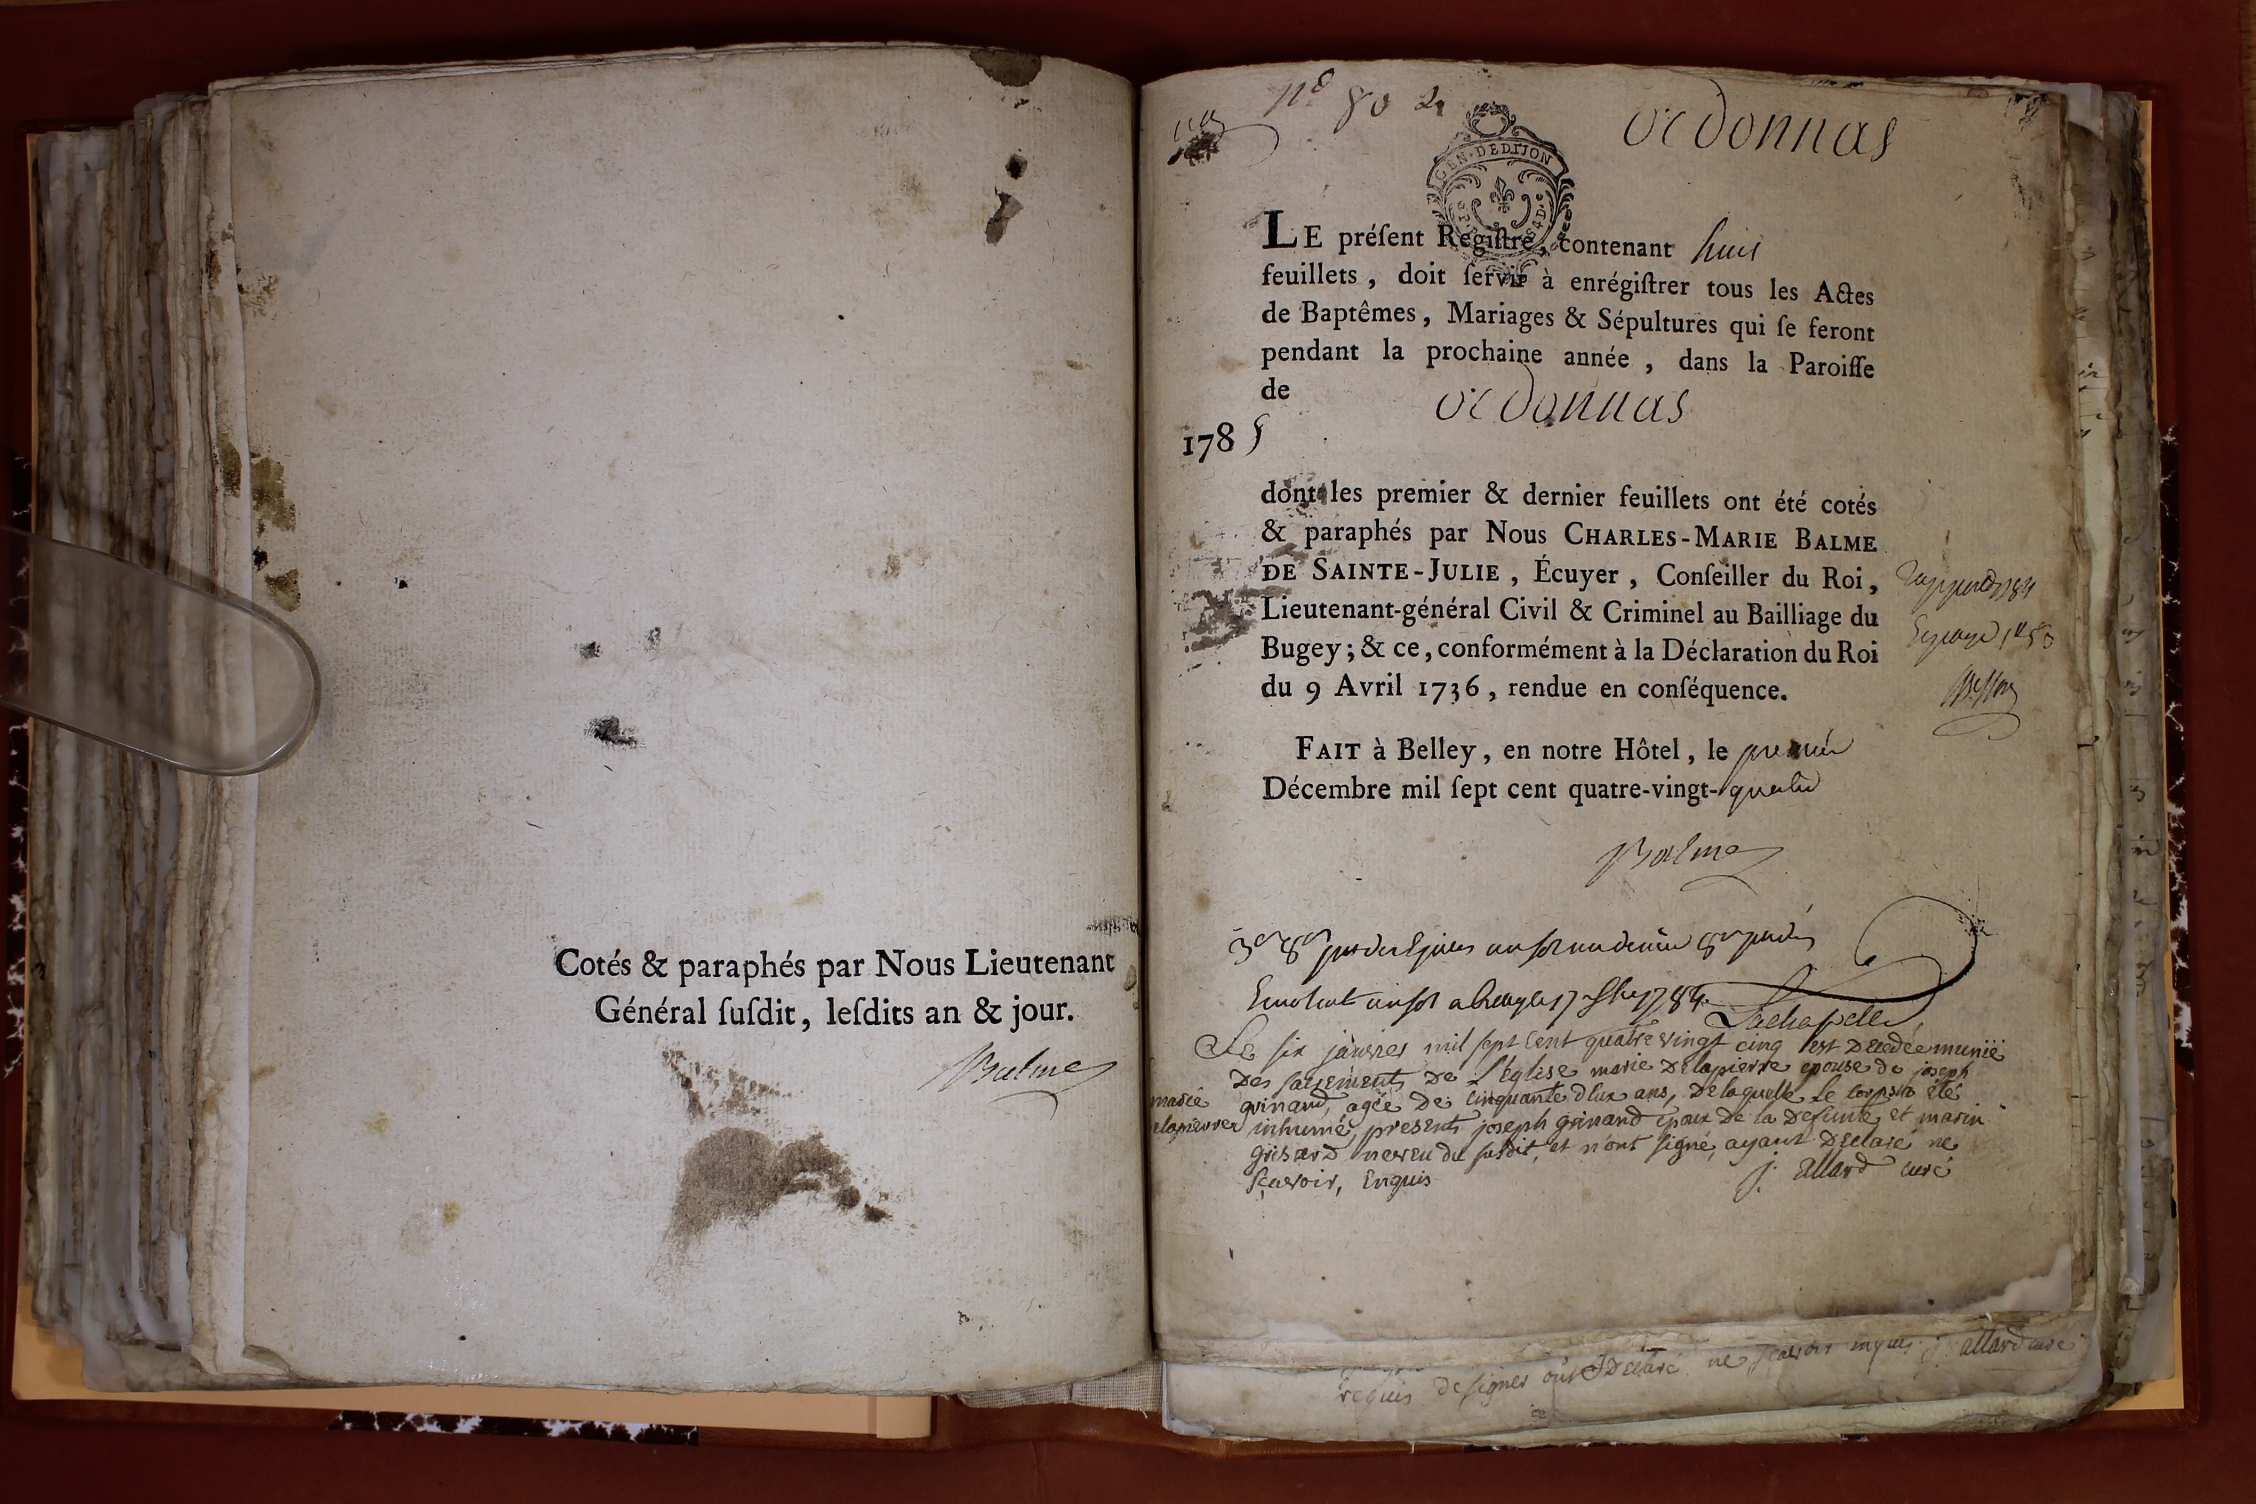 Cotés & paraphés par Nous Lieutenant
Général ſuſdit, leſdits an & jour.
Balme
n° 80 2
ordonnas
GEN. DE DIJON
LE préſent Regiſtre, contenant huit
feuillets, doit ſervir à enrégiſtrer tous les Actes
de Baptêmes, Mariages & Sépultures qui ſe feront
pendant la prochaine année, dans la Paroiſſe
de ordonnas
1785
dont les premier & dernier feuillets ont été cotés
& paraphés par Nous CHARLES-MARIE BALME
DE SAINTE-JULIE, Écuyer, Conſeiller du Roi,
Lieutenant-général Civil & Criminel au Bailliage du
Bugey; & ce, conformément à la Déclaration du Roi
du 9 Avril 1736, rendue en conſéquence.
FAIT à Belley, en notre Hôtel, le premier
Décembre mil ſept cent quatre-vingt-quatre
Balme
Lachapelle
Le six janvier mil sept cent quatre vingt cinq est decedée munië
des sacrements de l'église marie delapierre epouse de joseph
marie
grinand, agée de cinquante deux ans, de laquelle le corps a été
elapierre
inhumé, presents joseph grinand epoux de la defunte, et marin
grinand neveu du susdit, et n'ont signé, ayant declaré ne
sçavoir, enquis
j. allard curé
requis de signer ont declaré ne sçavoir enquis j. allard curé